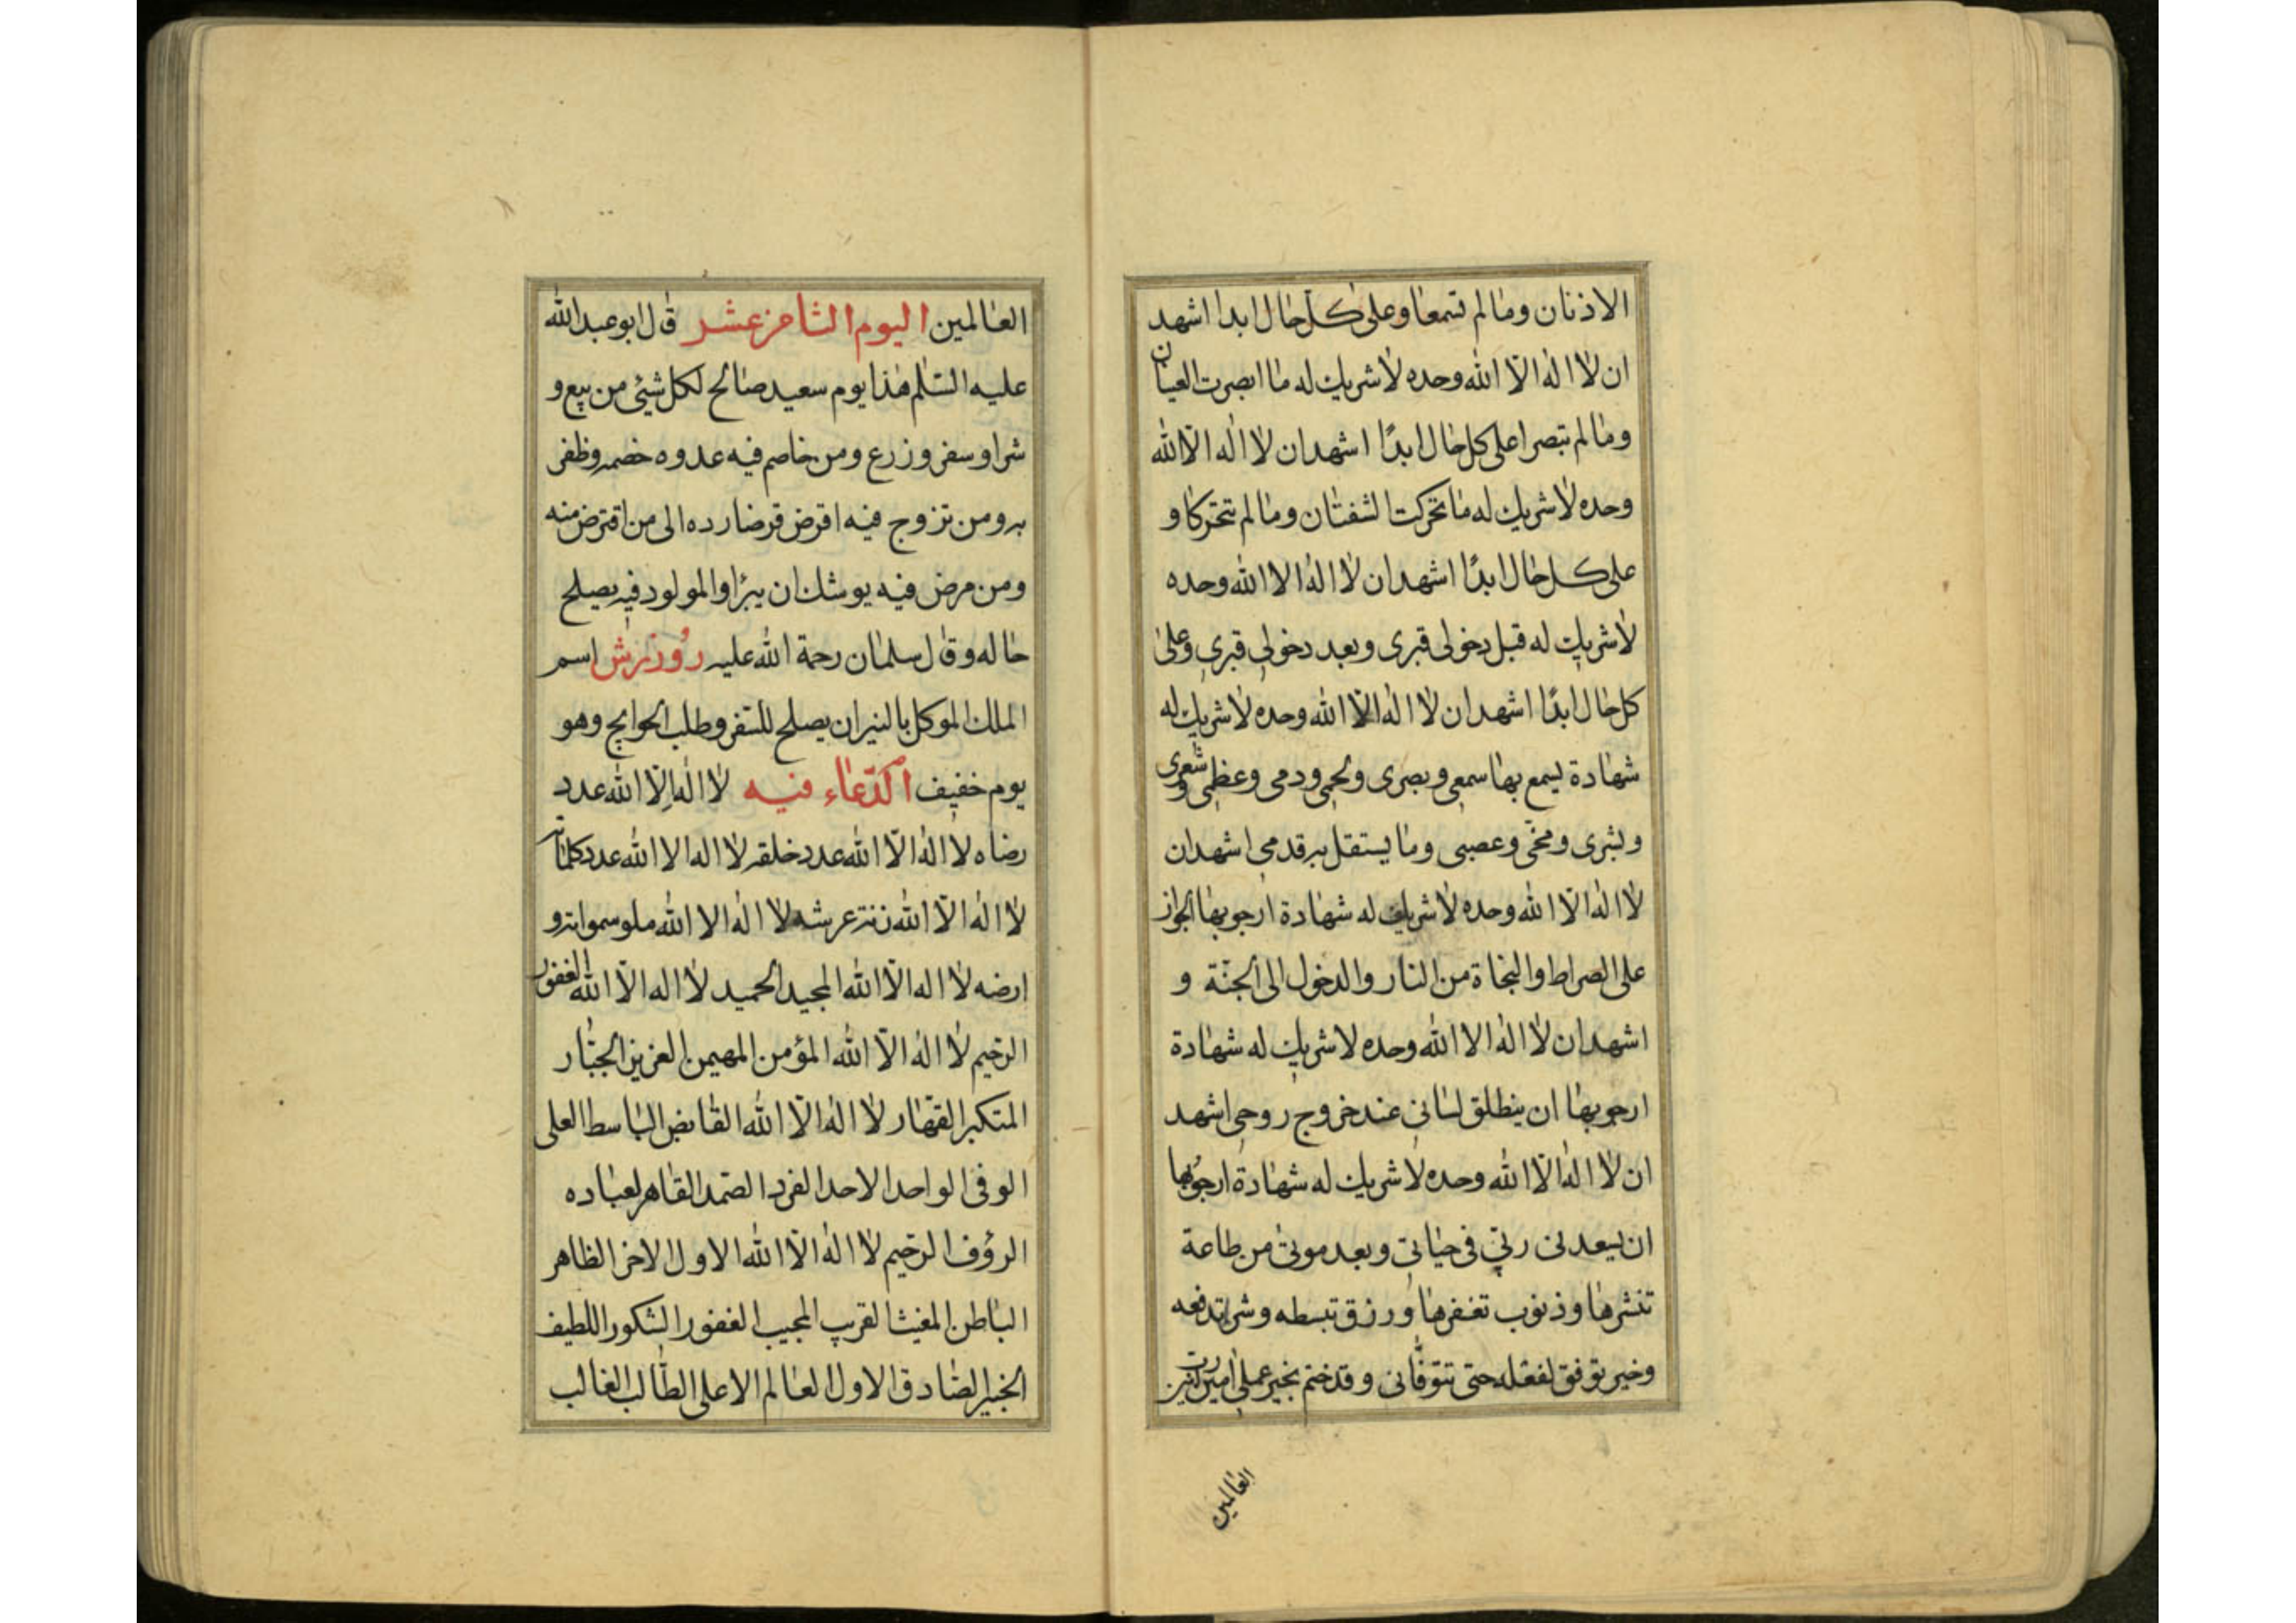 الاذنان وما لم تسمعا وعلى كل حال ابدا اشهد
ان لا اله الا الله وحده لا شريك له ما ابصرت العينان
وما لم تبصرا على كل حال ابدًا اشهد ان لا اله الّا الله
وحده لا شريك له ما تحركت الشفتان وما لم تتحركا و
على كل حال ابدًا اشهد ان لا اله الا الله وحده
لا شريك له قبل دخولى قبرى وبعد دخولى قبرى وعلى
كل حال ابدًا اشهد ان لا اله الّا الله وحده لا شريك له
شهادة يسمع بها سمعى وبصرى ولحمى ودمى وعظمى وشعرى
وبشرى ومخّى وعصبى وما يستقل به قدمى اشهد ان
لا اله الّا الله وحده لا شريك له شهادة ارجو بها الجواز
على الصراط والنجاة من النار والدخول الى الجنّة و
اشهد ان لا اله الا الله وحده لا شريك له شهادة
ارجو بها ان ينطلق لسانى عند خروج روحى اشهد
ان لا اله الّا الله وحده لا شريك له شهادة ارجو بها
ان يسعدنى ربّى فى حياتى وبعد موتى من طاعة
تنشرها وذنوب تغفرها ورزق تبسطه وشر تدفعه
وخير توفق لفعله حتى تتوفّانى وقد ختم بخير عملى امين رب
العالمين
العالمين اليوم الثامن عشر قال ابو عبد الله
عليه السّلم هذا يوم سعيد صالح لكل شيئ من بيع و
شرا وسفر وزرع ومن خاصم فيه عدوه خصمه وظفر
به ومن تزوج فيه اقرض قرضا رده الى من اقترض منه
ومن مرض فيه يوشك ان يبرأ والمولود فيه يصلح
حاله وقال سلمان رحمة الله عليه روزرش اسم
الملك الموكل بالنيران يصلح للسّفر وطلب الحوايج وهو
يوم خفيف الدّعاء فيه لا اله الّا الله عدد
رضاه لا اله الّا الله عدد خلقه لا اله الا الله عدد كلماته
لا اله الّا الله زنة عرشه لا اله الا الله ملو سمواته و
ارضه لا اله الّا الله المجيد الحميد لا اله الّا الله الغفور
الرّحيم لا اله الّا الله المؤمن المهيمن العزيز الجبّار
المتكبر القهار لا اله الّا الله القابض الباسط العلى
الوفى الواحد الاحد الفرد الصّمد القاهر لعباده
الرؤف الرّحيم لا اله الّا الله الاول الاخر الظاهر
الباطن المغيث القريب المجيب الغفور الشكور اللطيف
الخبير الصّادق الاول العالم الاعلى الطّالب الغالب